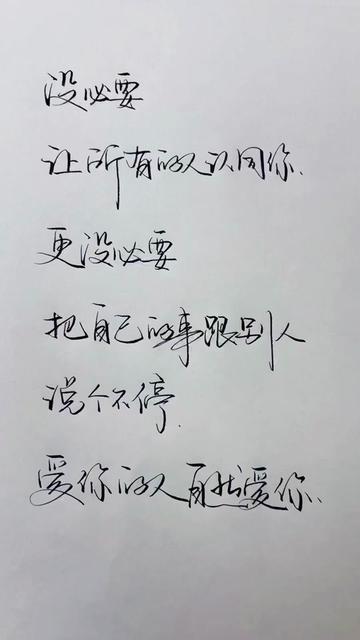 没必要
让所有的人认同你.
更没必要
把自己的事跟别人
说个不停.
爱你的人自然爱你.